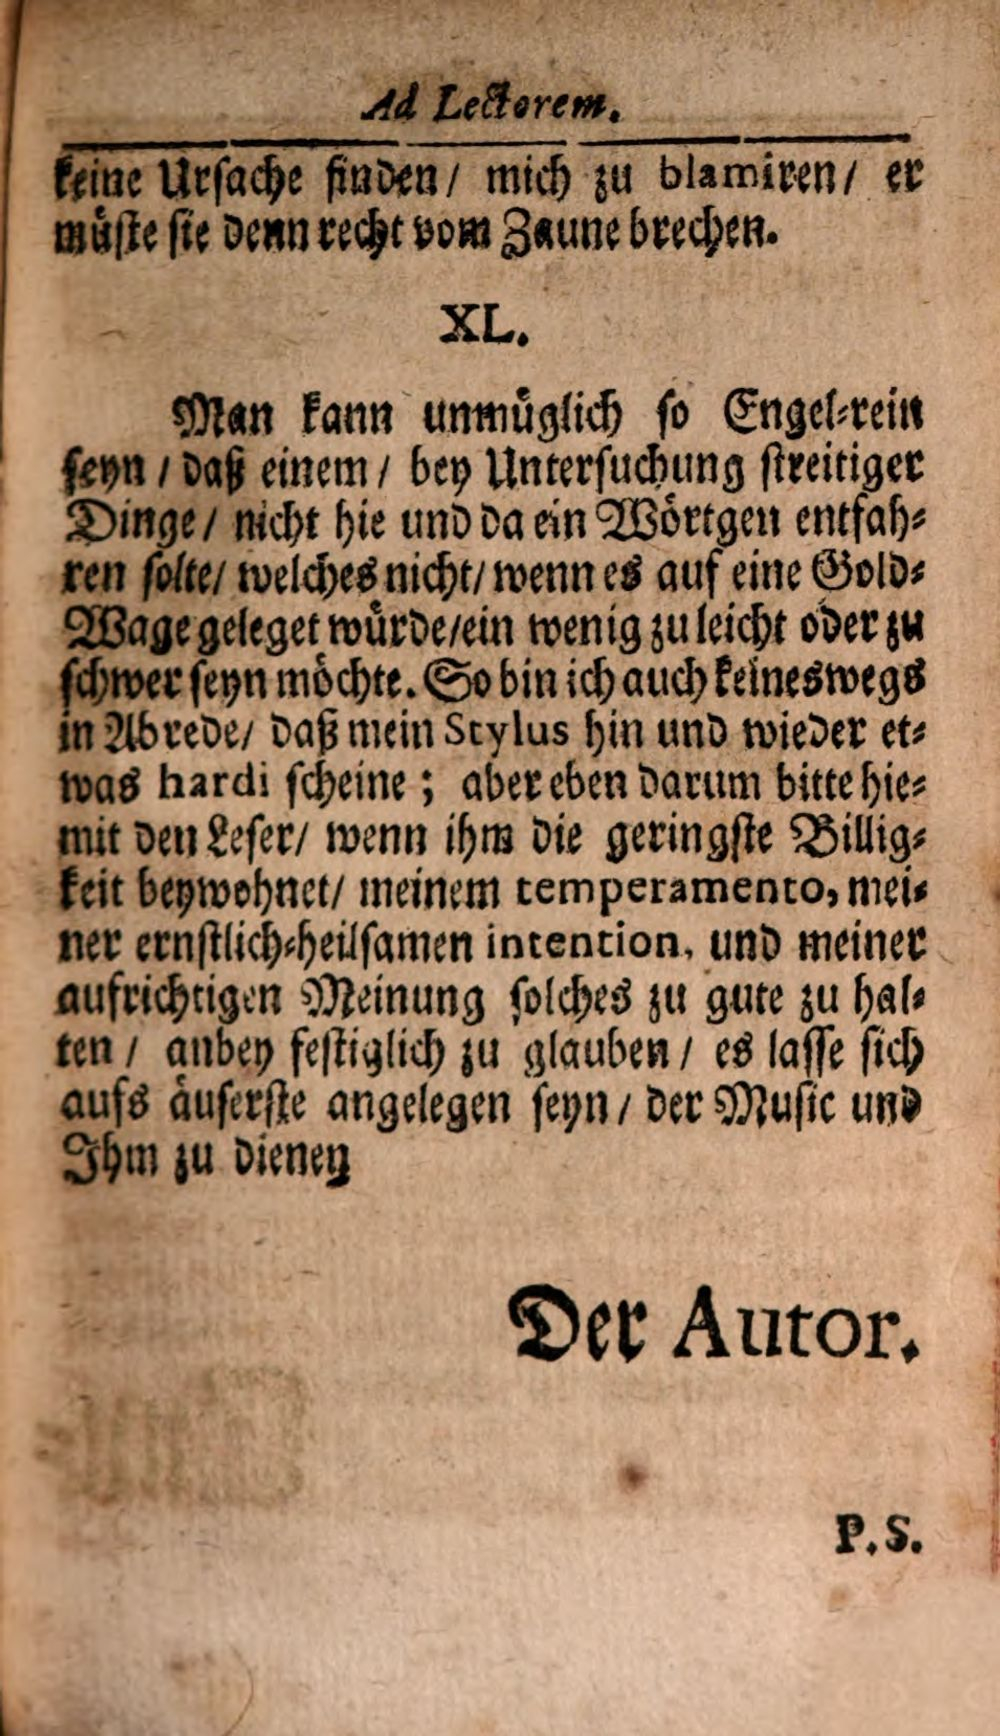 Ad Lectorem.
keine Ursache finden/ mich zu blamiren/ er
müste sie denn recht vom Zaune brechen.
XL.
Man kann unmüglich so Engel-rein
seyn / daß einem / bey Untersuchung streitiger
Dinge / nicht hie und da ein Wörtgen entfah-
ren solte/ welches nicht/ wenn es auf eine Gold-
Wage geleget würde/ein wenig zu leicht oder zu
schwer seyn möchte. So bin ich auch keineswegs
in Abrede/ daß mein Stylus hin und wieder et-
was hardi scheine ; aber eben darum bitte hie-
mit den Leser/ wenn ihm die geringste Billig-
keit beywohnet/ meinem temperamento, mei-
ner ernstlich-heilsamen intention, und meiner
aufrichtigen Meinung solches zu gute zu hal-
ten / anbey festiglich zu glauben / es lasse sich
aufs äuserste angelegen seyn / der Music und
Ihm zu dienen
Der Autor.
P.S.